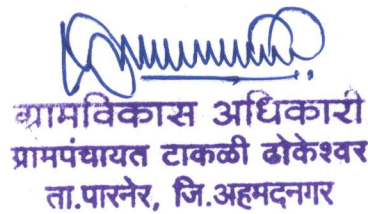 ग्रामविकास अधिकारी
ग्रामपंचायत टाकळी ढोकेश्वर
ता.पारनेर, जि.अहमदनगर